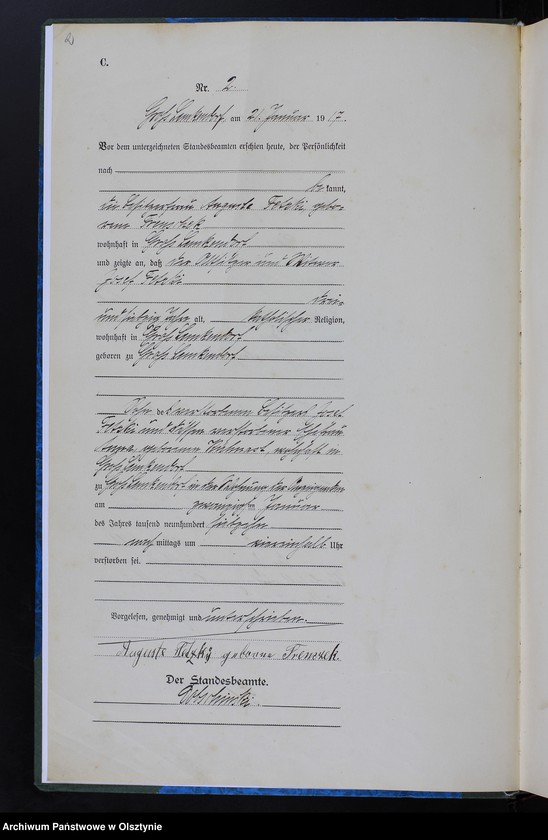 2
C.
Nr. 2.
Groß Lemkendorf, am 21. Januar 1917.
Vor dem unterzeichneten Standesbeamten erschien heute, der Persönlichkeit
nach
be kannt,
die Besitzerfrau Auguste gebo-
rene
wohnhaft in Groß Lemkendorf
und zeigte an, daß der Altsitzer und Witwer
Josef
drei-
undsiebzig Jahre alt, katholischer Religion,
wohnhaft in Groß Lemkendorf
geboren zu Groß Lemkendorf
Sohn des verstorbenen Besitzers Josef
und dessen verstorbener Ehefrau
geborenen wohnhaft in
Groß Lemkendorf
zu Groß Lemkendorf in der Wohnung der
am zwanzigsten Januar
des Jahres tausend neunhundert siebzehn
nach mittags um Uhr
verstorben sei.
Vorgelesen, genehmigt und unterschrieben.
Auguste geborene
Der Standesbeamte.
Archiwum Państwowe w Olsztynie